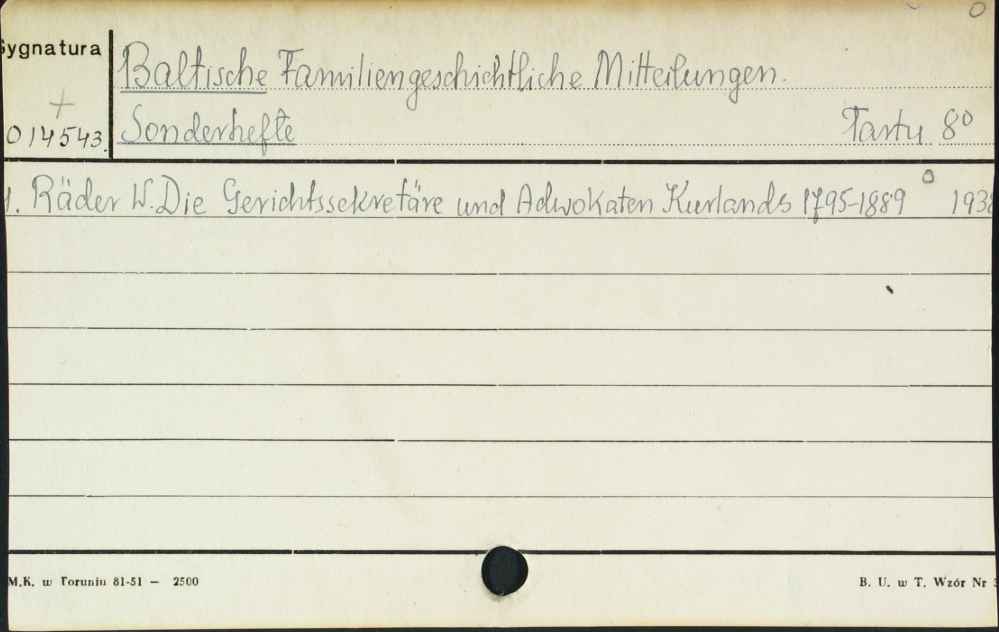 Sygnatura
Baltische Familiengeschichtliche Mitteilungen.
+
014543 Sonderhefte Tartu 8°
1. Räder W. Die Gerichtssekretäre und Advokaten Kurlands 1795-1889 1938
M.K. w Toruniu 81-51 — 2500
B. U. w T. Wzór Nr